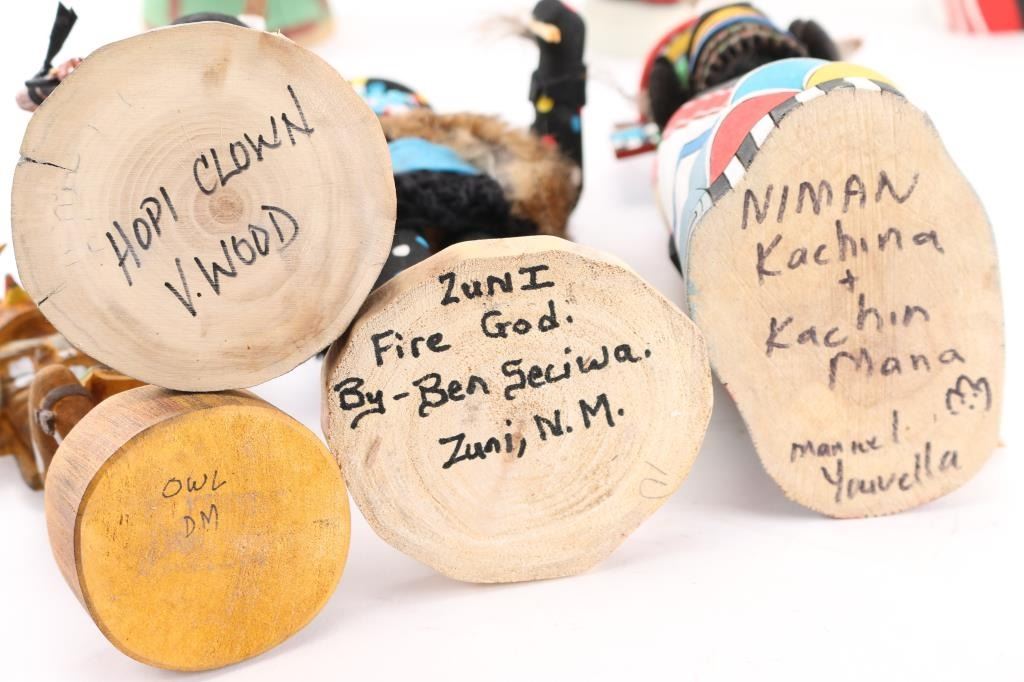 HOPI CLOWN
V. WOOD
ZUNI
Fire God.
By-Ben Seciwa.
Zuni, N.M.
NIMAN
Kachina
+
Kachin
Mana
manuel.
Youvella
OWL
DM